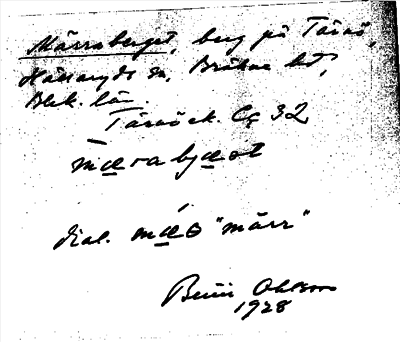 Märraberget, berg på Tärnö,
Hällaryds sn, Bräkne hd,
Blek. län.
Tärnö ek. Cg 32
mæra bjæst
dial. mæs "märr"
Ohlsson
1928